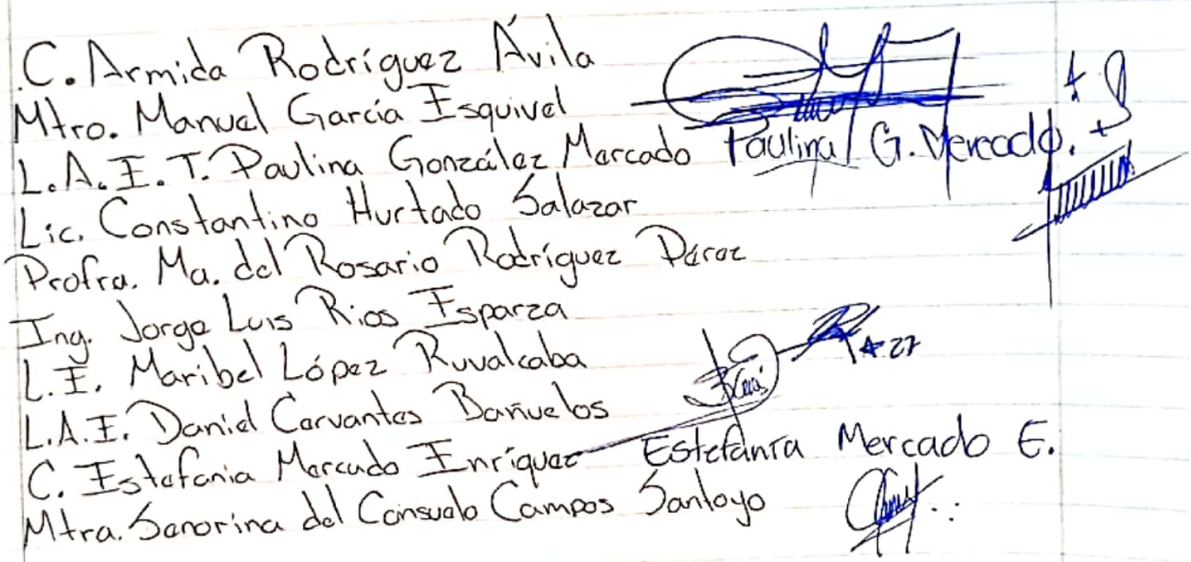 C. Armida Rodríguez Ávila
Mtro. Manuel García Esquivel
L.A.E.T. Paulina González Mercado Paulina G. Mercado.
Lic. Constantino Hurtado Salazar
Profra. Ma. del Rosario Rodríguez Pérez
Ing. Jorge Luis Rios Esparza
L.E. Maribel López Ruvalcaba
27
L.A.E. Daniel Cervantes Bañuelos
C. Estefania Mercado Enríquez Estefanía Mercado E.
Mtra. Senorina del Consuelo Campos Santoyo